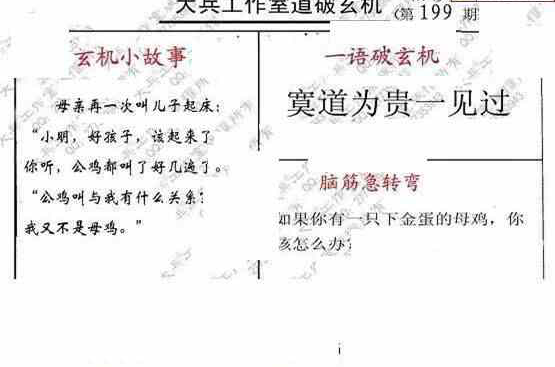 大兵工作室道破玄机 (第 199 期
玄机小故事
母亲再一次叫儿子起床:
“小明,好孩子,该起来了
你听,公鸡都叫了好几遍了。
“公鸡叫与我有什么关系?
我又不是母鸡。”
一语破玄机
寞道为贵一见过
脑筋急转弯
如果你有一只下金蛋的母鸡,你
该怎么办?